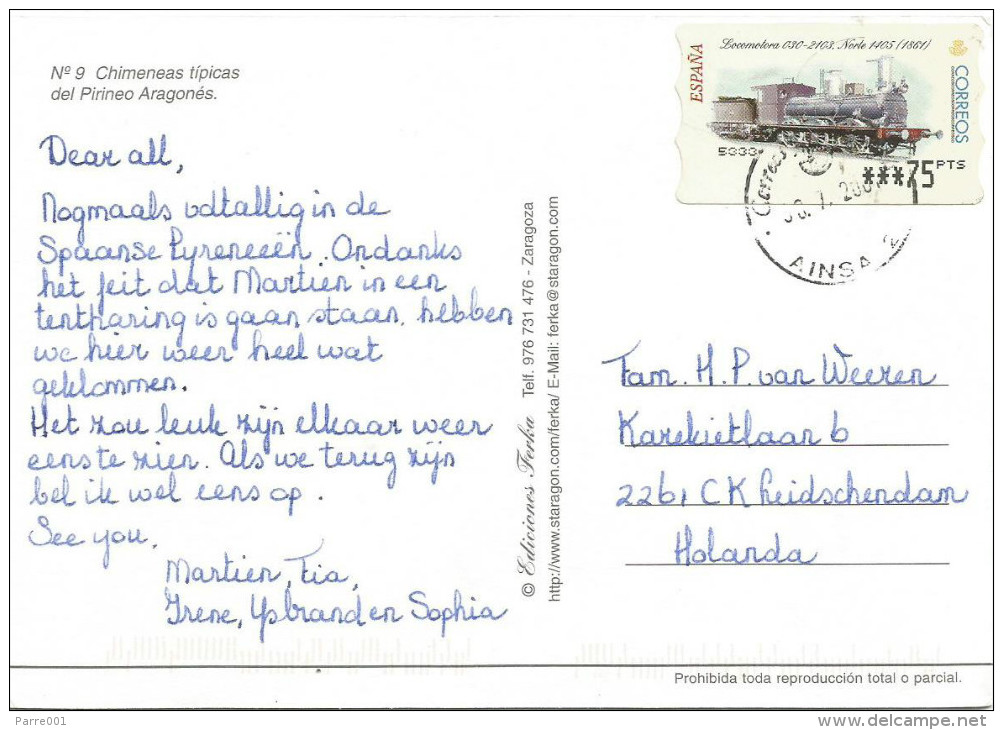 Nº 9 Chimeneas típicas
del Pirineo Aragonés.
Dear all,
Nogmaals vdtallig in de
Spaanse Pyreneeën. Ondanks
het feit dat Martien in een
tentharing is gaan staan, hebben
we hier weer heel wat
geklommen.
Het zou leuk zijn elkaar weer
eens te zien. Als we terug zijn
bel ik wel eens op.
See you,
Martien, Tia,
Irene, Ysbrand en Sophia
© Ediciones Ferka Telf. 976 731 476 - Zaragoza
http://www.staragon.com/ferka/ E-Mail: ferka@staragon.com
Locomotora 030-2103. Norte 1405 (1861)
ESPAÑA
CORREOS
5333
***75 PTS
Correos
AINSA
Fam. H. P. van Weeren
Karekietlaan 6
2261 CK Leidschendam
Holanda
Prohibida toda reproducción total o parcial.
Parre001
delcampe.net